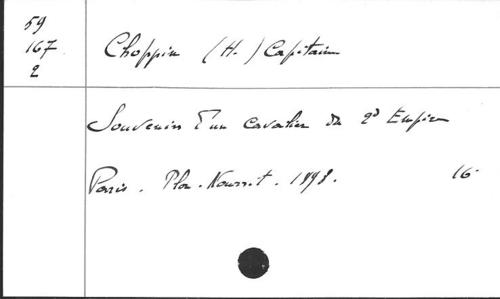 59
167
2
Choppin (H.) Capitain
Souvenirs d'un cavalier du 2d Empire
Paris. Plon-Nourrit. 1898. 16-